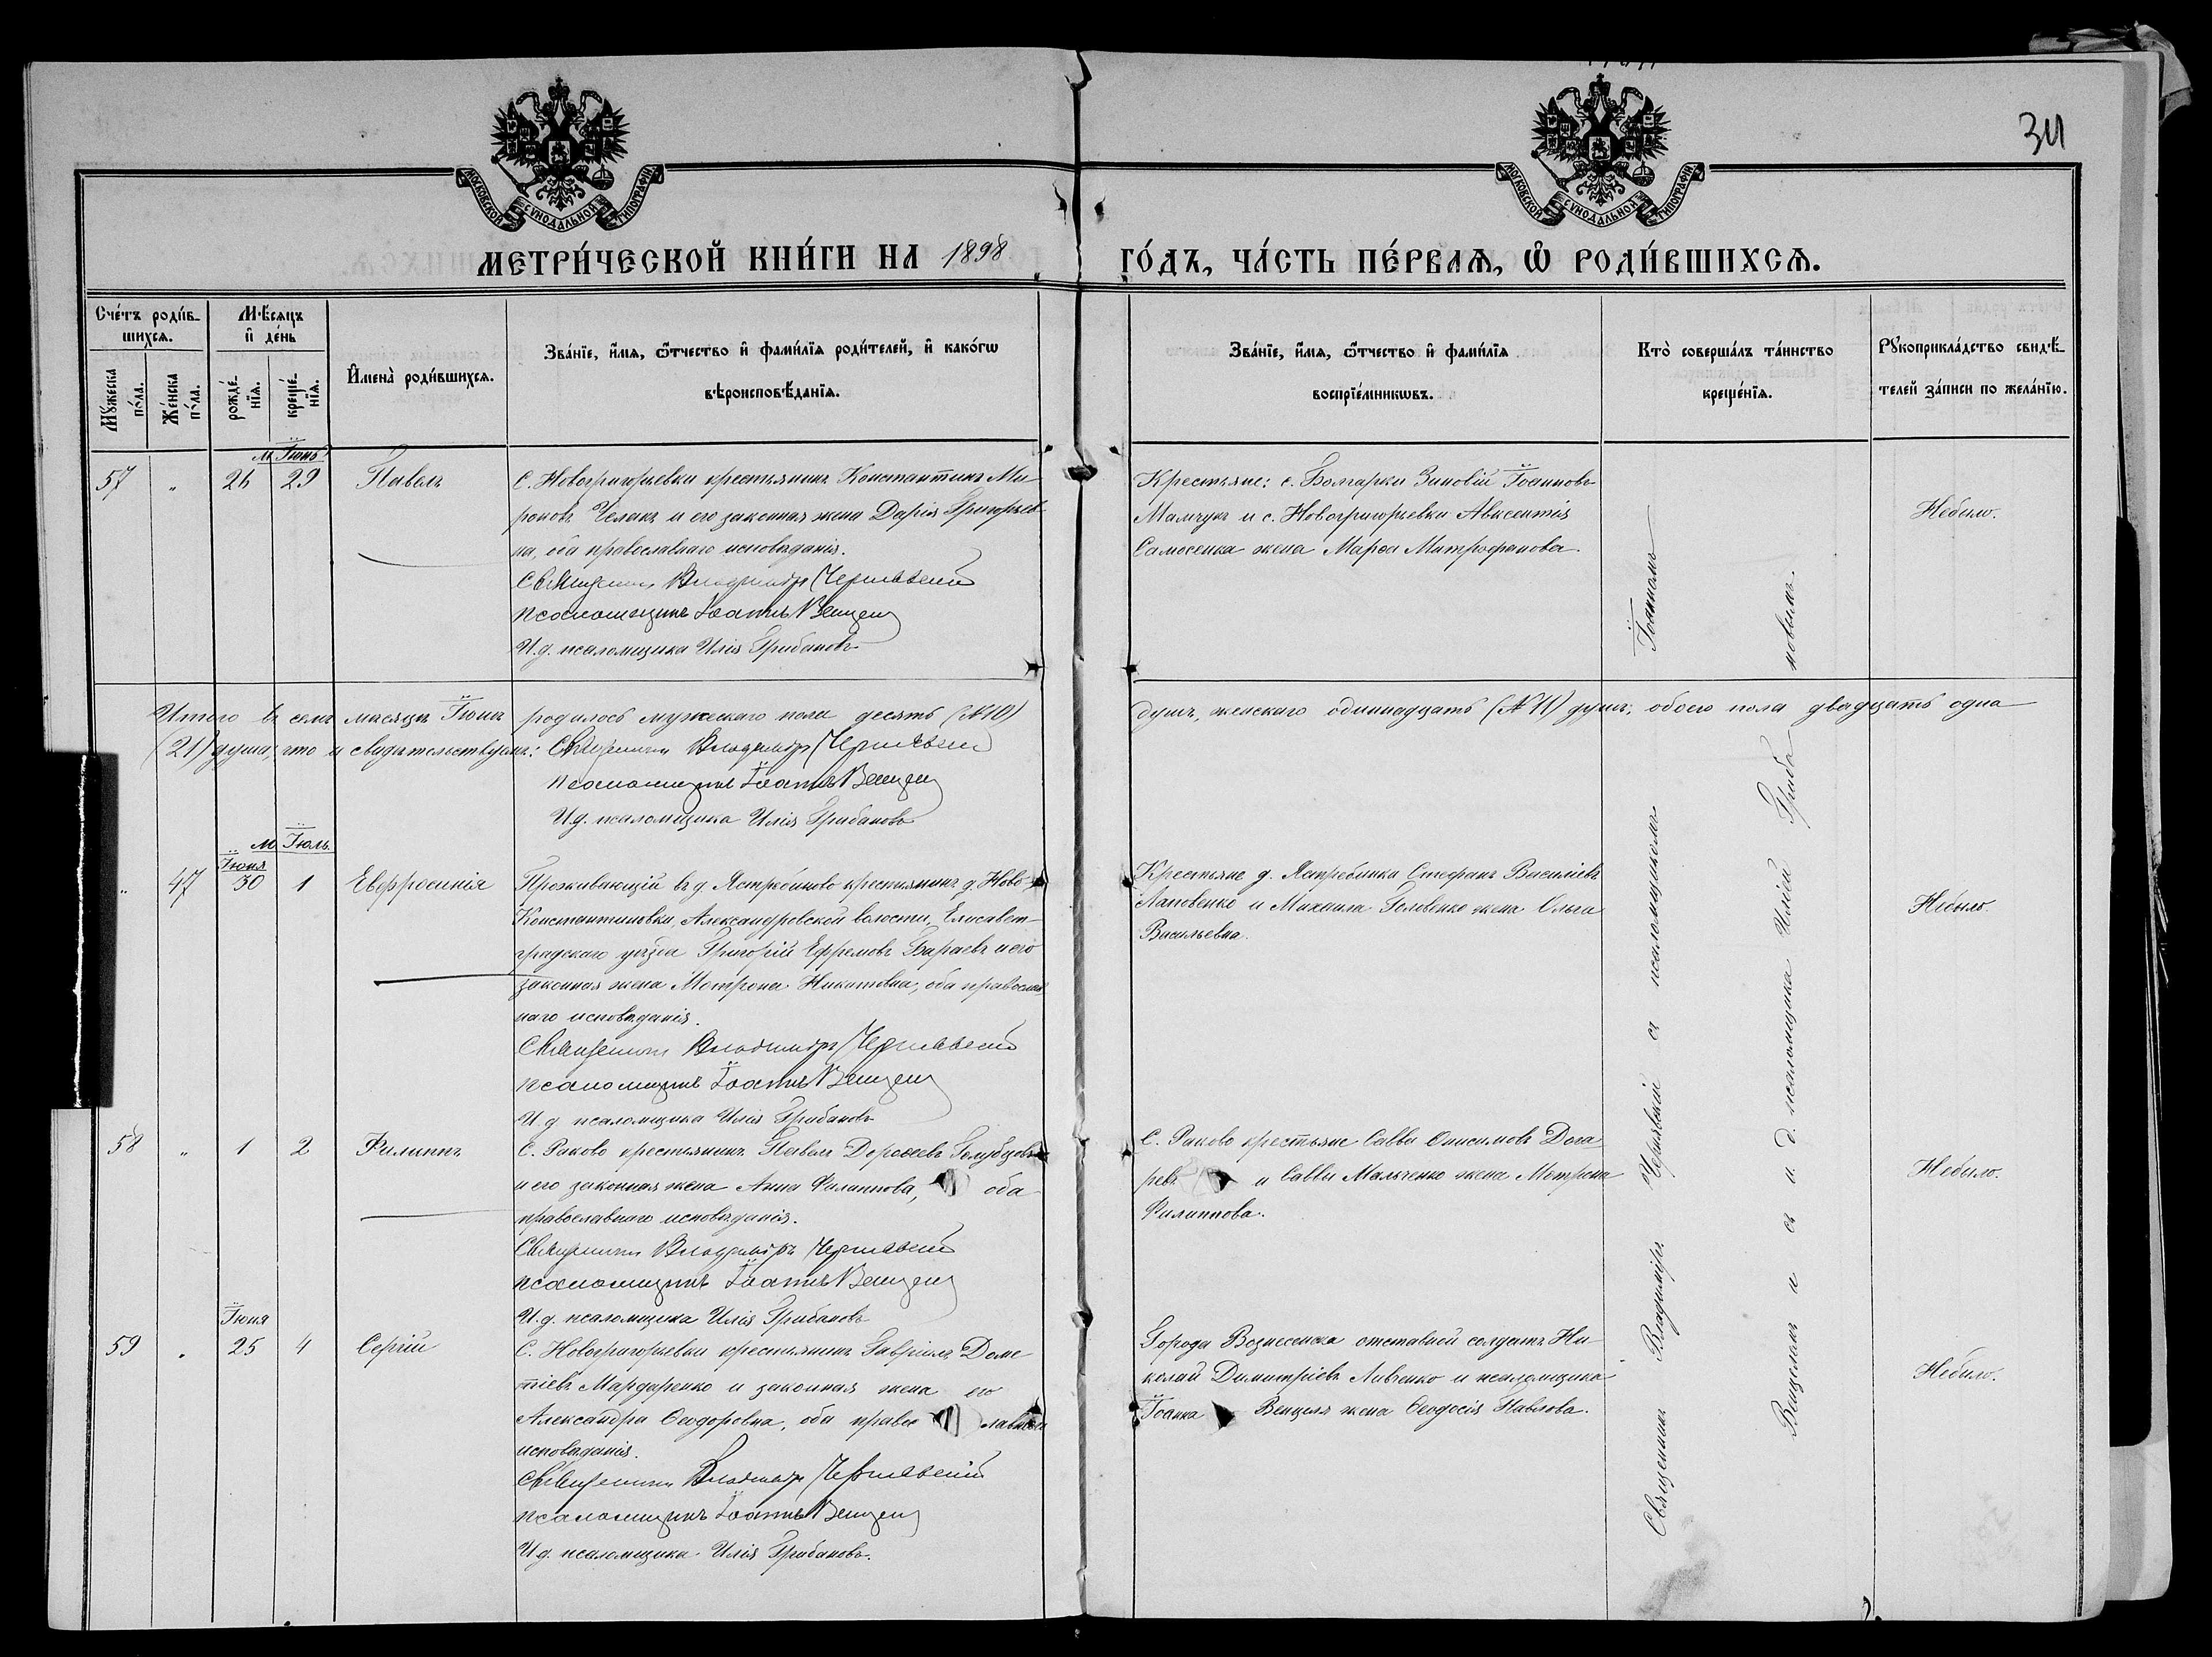 34
МОСКОВСКОЙ СѴНОДАЛЬНОЙ ТИПОГРАФІИ
МОСКОВСКОЙ СѴНОДАЛЬНОЙ ТИПОГРАФІИ
МЕТРИ́ЧЕСКОЙ КНИ́ГИ НА 1898 ГО́ДЪ, ЧА́СТЬ ПЕ́РВАѦ, Ѿ РОДИ́ВШИХСѦ.
Сче́тъ роди́в-
шихсѧ.
Мꙋ́жеска
по́ла.
Же́нска
по́ла.
Мѣ́сѧцъ
и҆ де́нь
рожде́-
нїѧ.
креще́-
нїѧ.
И҆мена̀ роди́вшихсѧ.
Зва́нїе, и҆́мѧ, ѻ҆́тчество и҆ фами́лїѧ роди́телей, и҆ како́гѡ
вѣроисповѣ́данїѧ.
Зва́нїе, и҆́мѧ, ѻ҆́тчество и҆ фами́лїѧ
воспрїе́мникѡвъ.
Кто̀ соверша́лъ та́инство
креще́нїѧ.
Рꙋкоприкла́дство свидѣ́-
телей за́писи по жела́нїю.
м. Іюнь
57 " 26 29 Павелъ
С. Новогригорьевки крестьянинъ Константинъ Ми-
роновъ Челакъ и его законная жена Дарія Григорьев-
на, оба православнаго исповѣданія.
Священникъ Владиміръ Чернявскій
псаломщикъ Іоаннъ Венцель
И.д. псаломщика Илія Грибановъ
Крестьяне: с. Болгарки Зиновій Іоанновъ
Мамчукъ и с. Новогригорьевки Авксентія
Самосенка жена Марѳа Митрофанова.
Небыло.
Итого въ семъ мѣсяцѣ Іюнѣ родилось мужескаго пола десять (№10) душъ, женскаго одиннадцать (№11) душъ, обоего пола двадцать одна
(21) душа; что и свидѣтельствуемъ: Священникъ Владиміръ Чернявскій
псаломщикъ Іоаннъ Венцель
И.д. псаломщика Илія Грибановъ
м. Іюль.
Іюня
" 47 30 1 Евфросинія
Проживающій въ д. Ястребиново крестьянинъ д. Ново-
Константиновки, Александровской волости, Елисавет-
градскаго уѣзда Григорій Ефремовъ Бараевъ и его
законная жена Мотрона Никитовна, оба православ-
наго исповѣданія.
Священникъ Владиміръ Чернявскій
псаломщикъ Іоаннъ Венцель
И.д. псаломщика Илія Грибановъ
Крестьяне д. Ястребинки Стефанъ Василіевъ
Лановенко и Михаила Головенко жена Ольга
Васильевна.
Небыло.
58 " 1 2 Филиппъ
С. Раково крестьянинъ Павелъ Дороѳеевъ Голубцовъ
и его законная жена Анна Филиппова, оба
православнаго исповѣданія.
Священникъ Владиміръ Чернявскій
псаломщикъ Іоаннъ Венцель
И.д. псаломщика Илія Грибановъ
С. Раково крестьяне Савва Онисимовъ Дога-
ревъ и Саввы Мальченко жена Мотрона
Филиппова.
Небыло.
Іюня
59 " 25 4 Сергій
С. Новогригорьевки крестьянинъ Гавріилъ Доме-
тіевъ Мардаренко и законная жена его
Александра Ѳеодоровна, оба православнаго
исповѣданія.
Священникъ Владиміръ Чернявскій
псаломщикъ Іоаннъ Венцель
И.д. псаломщика Илія Грибановъ.
Города Вознесенска отставной солдатъ Ни-
колай Димитріевъ Ливченко и псаломщика
Іоанна Венцеля жена Ѳеодосія Павлова.
Небыло.
Священникъ Владиміръ Чернявскій съ псаломщикомъ Іоанномъ
Венцелемъ и съ и.д. псаломщика Иліей Грибановымъ.